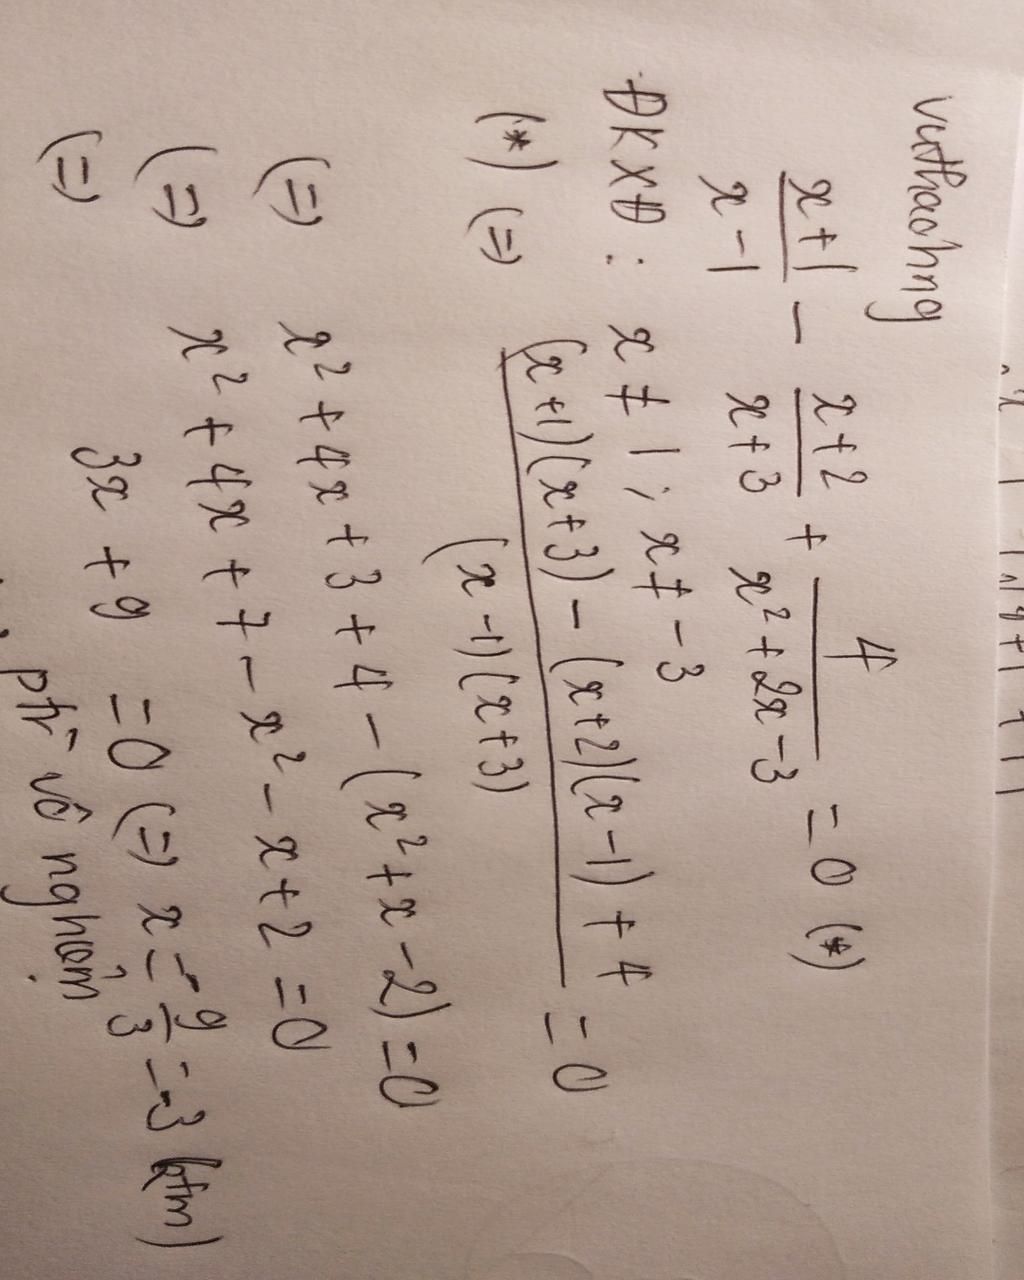 vuthaohng
x+1/x-1 - x+2/x+3 + 4/x²+2x-3 = 0 (*)
ĐKXĐ: x ≠ 1; x ≠ -3
(*) (=) (x+1)(x+3) - (x+2)(x-1) + 4/(x-1)(x+3) = 0
(=) x² + 4x + 3 + 4 - (x² + x - 2) = 0
(=) x² + 4x + 7 - x² - x + 2 = 0
(=) 3x + 9 = 0 (=) x = -9/3 = -3 (ktm)
ptr vô nghiệm